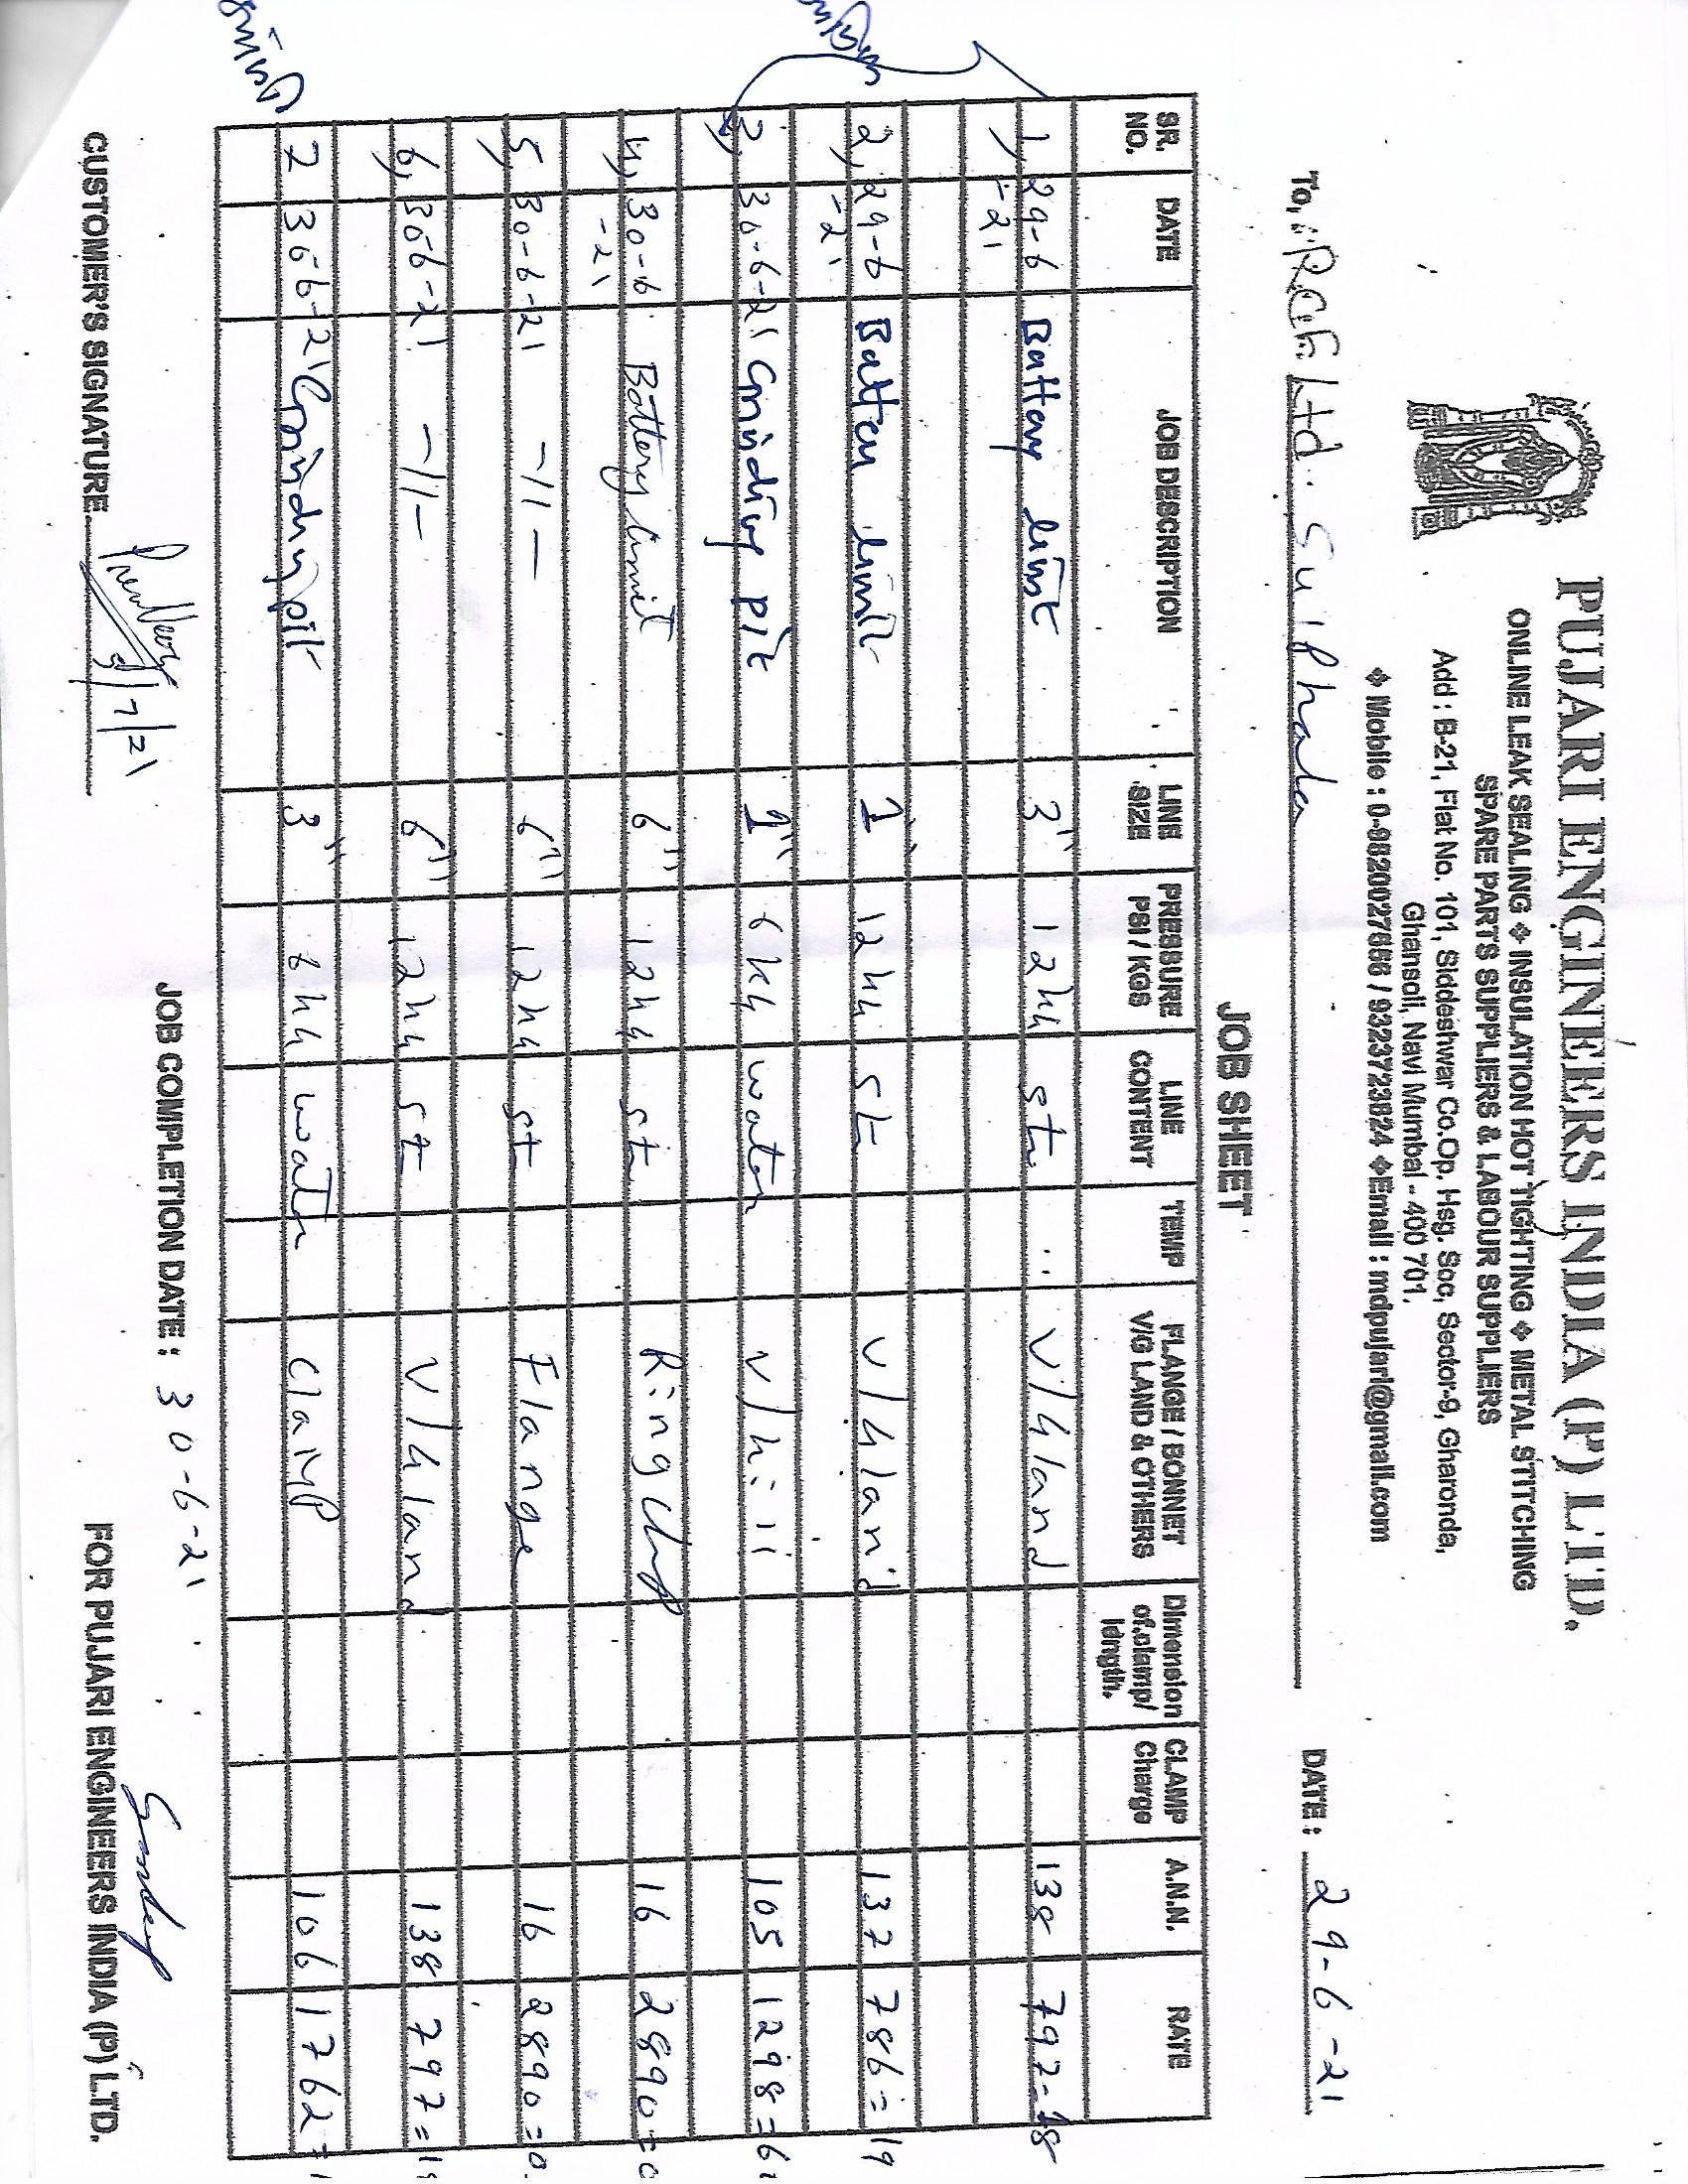 PUJARI ENGINEERS INDIA (P) LTD.
ONLINE LEAK SEALING ❖ INSULATION HOT TIGHTING ❖ METAL STITCHING
SPARE PARTS SUPPLIERS & LABOUR SUPPLIERS
Add : B-21, Flat No. 101, Siddeshwar Co.Op. Hsg. Soc, Sector-9, Gharonda,
Ghansoli, Navi Mumbai - 400 701.
❖ Mobile : 0-9820027666 / 9323723824 ❖Email : mdpujari@gmail.com
JOB SHEET
To, RCF Ltd. Sulphader DATE : 29-6-21
SR. NO. DATE JOB DESCRIPTION LINE SIZE PRESSURE PSI / KGS LINE CONTENT TEMP FLANGE / BONNET V/G LAND & OTHERS Dimension of.clamp/ length. CLAMP Charge A.N.N. RATE
1, 29-6-21 Battery limit 3" 12 k4 st V/G land 138 797=18
2, 29-6-21 Batter limit 1" 12 k4 st V/G land 137 786=19
3, 30-6-21 Grinding pit 1" 6 k4 water 105 1298=6
4, 30-6-21 Battery limit 6" 12 k4 st Ring clup 16 2890=0
5, 30-6-21 -11- 6" 12 k4 st Flange 16 2890=0
6, 30-6-21 -11- 6" 12 k4 st V/G land 138 797=19
7 30-6-21 Grinding pit 3" 6 k4 water Clamp 106 1762=
JOB COMPLETION DATE : 30-6-21
CUSTOMER'S SIGNATURE 5/7/21
Sandeep
FOR PUJARI ENGINEERS INDIA (P) LTD.